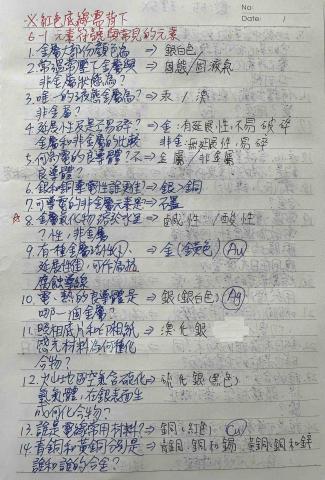 No:
Date: /
※紅色底線需背下
6-1 元素符號與常見的元素
1.金屬大部份顏色為 ⇒ 銀白色
2.常溫常壓下金屬與 ⇒ 固態/固液氣
非金屬狀態為?
3.唯一的液態金屬為? ⇒ 汞/溴
非金屬?
4.延展性及是否易碎? ⇒ 金:有延展性,不易破碎
金屬和非金屬的比較 非金:無延展性,易碎
5.何為電的良導體?不⇒ 金屬/非金屬
良導體?
6.銀和銅導電性誰更佳? ⇒ 銀>銅
7.可導電的非金屬元素是? ⇒ 石墨
8.金屬氧化物溶於水呈 ⇒ 鹼性/酸性
?性,非金屬
9.有一種金屬 ⇒ 金(金黃色) (Au)
延展性佳,可作
10.電、熱的良導體是 ⇒ 銀(銀白色) (Ag)
哪一個金屬?
11.照相底片和印相紙 ⇒ 溴化銀
感光材料為何種化
合物?
12.火山地區空氣含硫化 ⇒ 硫化銀(黑色)
氫氣體,在銀表面生
成何化合物?
13.誰是電線常用材料? ⇒ 銅(紅色) (Cu)
14.青銅和黃銅分別是 ⇒ 青銅:銅和錫 黃銅:銅和鋅
誰和誰的合金?